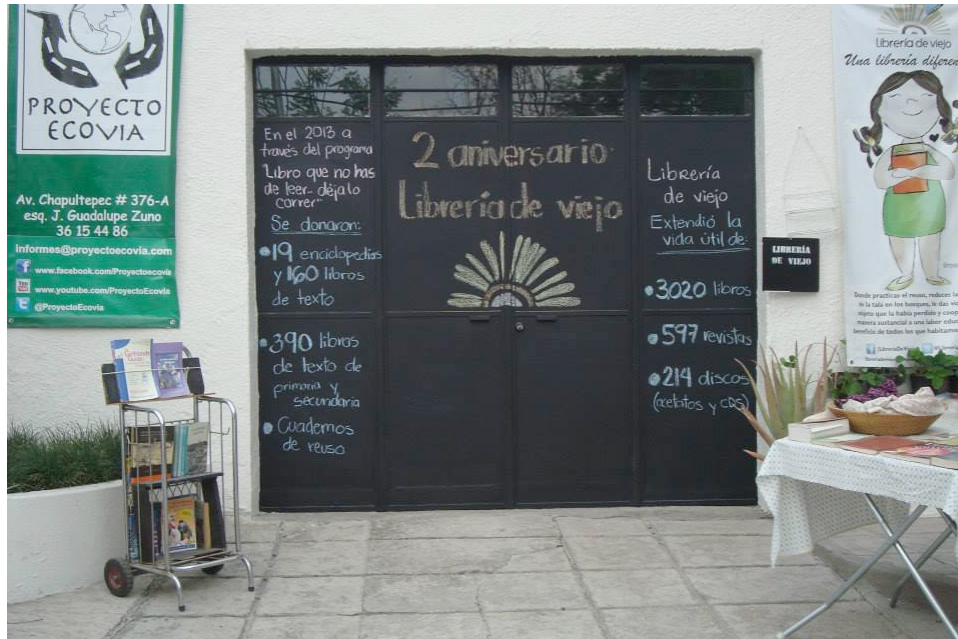 PROYECTO
ECOVIA
Av. Chapultepec # 376-A
esq. J. Guadalupe Zuno
36 15 44 86
informes@proyectoecovia.com
www.facebook.com/Proyectoecovia
www.youtube.com/ProyectoEcovia
@ProyectoEcovia
En el 2013 a
través del programa
"Libro que no has
de leer... déjalo
correr"
Se donaron:
19 enciclopedias
y 160 libros
de texto
390 libros
de texto de
primaria y
secundaria
Cuadernos
de reuso
2 aniversario
Librería de viejo
Librería
de viejo
Extendió la
vida útil de:
3,020 libros
597 revistas
214 discos
(acetatos y CDS)
LIBRERÍA
DE VIEJO
Librería de viejo
Una librería diferen
Donde practicas el reuso, reduces la